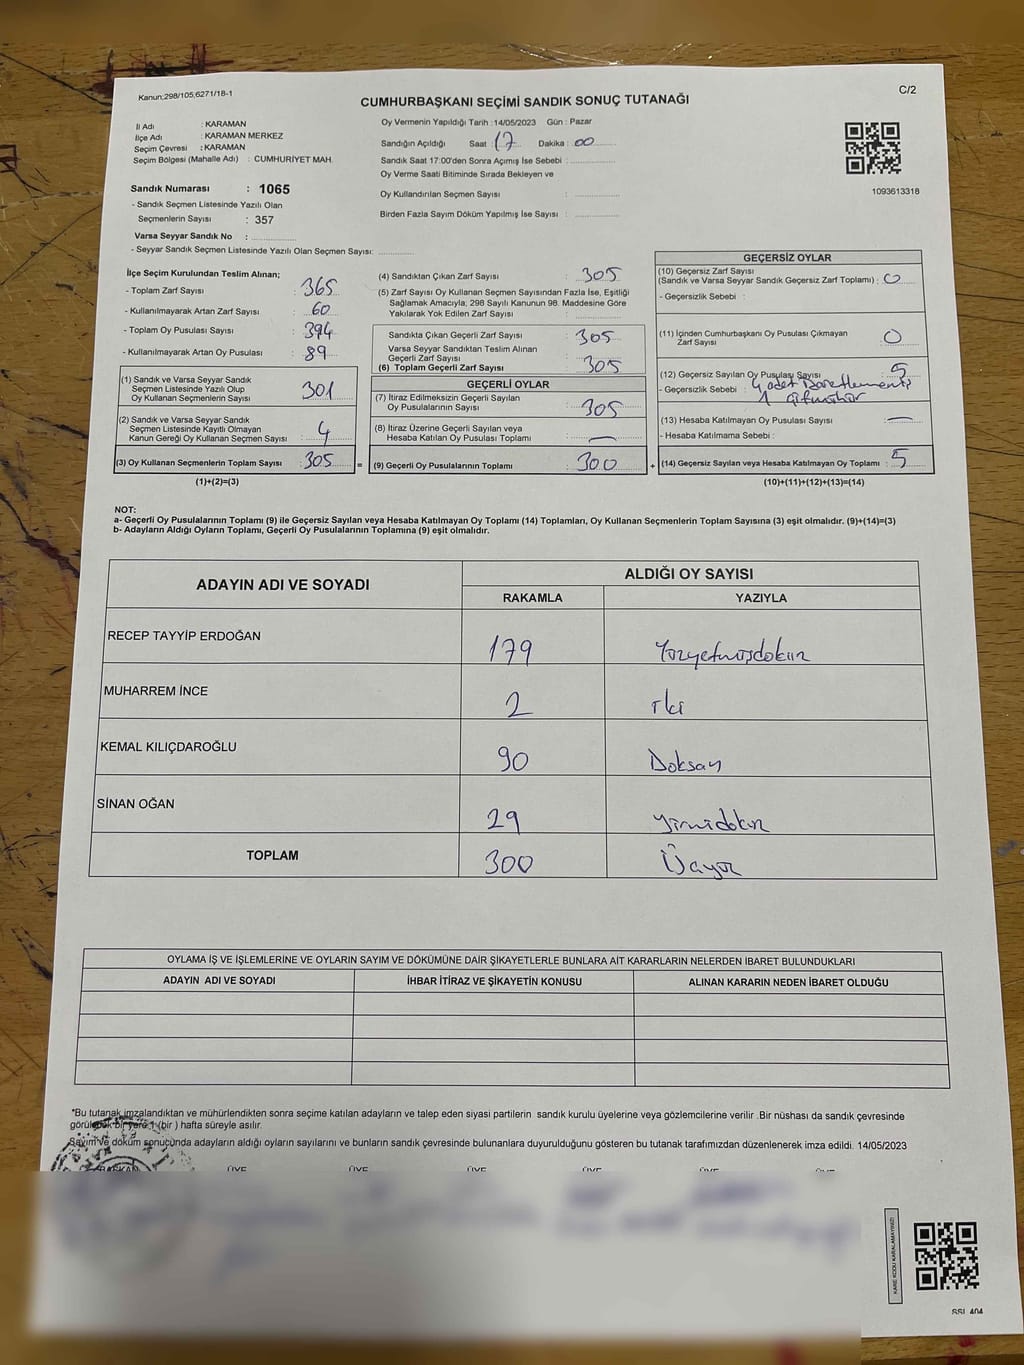 Kanun;298/105;6271/18-1
C/2
CUMHURBAŞKANI SEÇİMİ SANDIK SONUÇ TUTANAĞI
İl Adı : KARAMAN
İlçe Adı : KARAMAN MERKEZ
Seçim Çevresi : KARAMAN
Seçim Bölgesi (Mahalle Adı) : CUMHURİYET MAH.
Sandık Numarası : 1065
- Sandık Seçmen Listesinde Yazılı Olan
Seçmenlerin Sayısı : 357
Varsa Seyyar Sandık No :
- Seyyar Sandık Seçmen Listesinde Yazılı Olan Seçmen Sayısı:
Oy Vermenin Yapıldığı Tarih :14/05/2023 Gün : Pazar
Sandığın Açıldığı Saat 17 Dakika 00
Sandık Saat 17:00'den Sonra Açımış İse Sebebi :
Oy Verme Saati Bitiminde Sırada Bekleyen ve
Oy Kullandırılan Seçmen Sayısı :
Birden Fazla Sayım Döküm Yapılmış İse Sayısı :
1093613318
İlçe Seçim Kurulundan Teslim Alınan;
- Toplam Zarf Sayısı : 365
- Kullanılmayarak Artan Zarf Sayısı : 60
- Toplam Oy Pusulası Sayısı : 394
- Kullanılmayarak Artan Oy Pusulası : 89
(1) Sandık ve Varsa Seyyar Sandık
Seçmen Listesinde Yazılı Olup
Oy Kullanan Seçmenlerin Sayısı : 301
(2) Sandık ve Varsa Seyyar Sandık
Seçmen Listesinde Kayıtlı Olmayan
Kanun Gereği Oy Kullanan Seçmen Sayısı : 4
(3) Oy Kullanan Seçmenlerin Toplam Sayısı : 305
(1)+(2)=(3)
(4) Sandıktan Çıkan Zarf Sayısı : 305
(5) Zarf Sayısı Oy Kullanan Seçmen Sayısından Fazla İse, Eşitliği
Sağlamak Amacıyla; 298 Sayılı Kanunun 98. Maddesine Göre
Yakılarak Yok Edilen Zarf Sayısı :
Sandıkta Çıkan Geçerli Zarf Sayısı : 305
Varsa Seyyar Sandıktan Teslim Alınan
Geçerli Zarf Sayısı :
(6) Toplam Geçerli Zarf Sayısı : 305
GEÇERLİ OYLAR
(7) İtiraz Edilmeksizin Geçerli Sayılan
Oy Pusulalarının Sayısı : 305
(8) İtiraz Üzerine Geçerli Sayılan veya
Hesaba Katılan Oy Pusulası Toplamı : —
= (9) Geçerli Oy Pusulalarının Toplamı : 300
GEÇERSİZ OYLAR
(10) Geçersiz Zarf Sayısı
(Sandık ve Varsa Seyyar Sandık Geçersiz Zarf Toplamı) : 0
- Geçersizlik Sebebi :
(11) İçinden Cumhurbaşkanı Oy Pusulası Çıkmayan
Zarf Sayısı : 0
(12) Geçersiz Sayılan Oy Pusulası Sayısı : 5
- Geçersizlik Sebebi : 4 adet
1
(13) Hesaba Katılmayan Oy Pusulası Sayısı : —
- Hesaba Katılmama Sebebi :
+ (14) Geçersiz Sayılan veya Hesaba Katılmayan Oy Toplamı : 5
(10)+(11)+(12)+(13)=(14)
NOT:
a- Geçerli Oy Pusulalarının Toplamı (9) ile Geçersiz Sayılan veya Hesaba Katılmayan Oy Toplamı (14) Toplamları, Oy Kullanan Seçmenlerin Toplam Sayısına (3) eşit olmalıdır. (9)+(14)=(3)
b- Adayların Aldığı Oyların Toplamı, Geçerli Oy Pusulalarının Toplamına (9) eşit olmalıdır.
ADAYIN ADI VE SOYADI
ALDIĞI OY SAYISI
RAKAMLA YAZIYLA
RECEP TAYYİP ERDOĞAN 179 Yüzyetmişdokuz
MUHARREM İNCE 2 iki
KEMAL KILIÇDAROĞLU 90 Doksan
SİNAN OĞAN 29 yirmidokuz
TOPLAM 300 Üçyüz
OYLAMA İŞ VE İŞLEMLERİNE VE OYLARIN SAYIM VE DÖKÜMÜNE DAİR ŞİKAYETLERLE BUNLARA AİT KARARLARIN NELERDEN İBARET BULUNDUKLARI
ADAYIN ADI VE SOYADI İHBAR İTİRAZ VE ŞİKAYETİN KONUSU ALINAN KARARIN NEDEN İBARET OLDUĞU
*Bu tutanak imzalandıktan ve mühürlendikten sonra seçime katılan adayların ve talep eden siyasi partilerin sandık kurulu üyelerine veya gözlemcilerine verilir .Bir nüshası da sandık çevresinde
görülecek bir yere 1 (bir ) hafta süreyle asılır.
Sayım ve döküm sonucunda adayların aldığı oyların sayılarını ve bunların sandık çevresinde bulunanlara duyurulduğunu gösteren bu tutanak tarafımızdan düzenlenerek imza edildi. 14/05/2023
BAŞKAN ÜYE ÜYE ÜYE ÜYE ÜYE ÜYE
KARE KODU KARALAMAYINIZ!
SSI_404